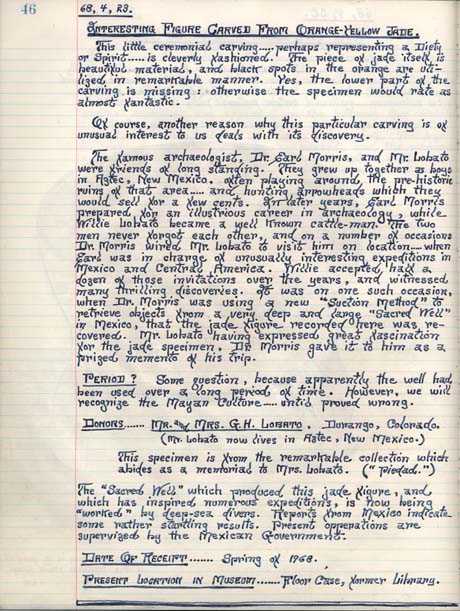 46
68, 4, 23.
Interesting Figure Carved From Orange-Yellow Jade.
This little ceremonial carving..... perhaps representing a Diety
or Spirit..... is cleverly fashioned. The piece of jade itself is
beautiful material, and black spots in the orange are uti-
lized in remarkable manner. Yes, the lower part of the
carving is missing: otherwise the specimen would rate as
almost fantastic.
Of course, another reason why this particular carving is of
unusual interest to us deals with its discovery.
The famous archaeologist, Dr. Earl Morris, and Mr. Lobato
were friends of long standing. They grew up together as boys
in Aztec, New Mexico, often playing around the pre-historic
ruins of that area..... and, hunting arrowheads which they
would sell for a few cents. In later years, Earl Morris
prepared for an illustrious career in archaeology, while
Willie Lobato became a well known cattle-man. The two
men never forgot each other, and on a number of occasions
Dr. Morris wired Mr. Lobato to visit him on location.... when
Earl was in charge of unusually interesting expeditions in
Mexico and Central America. Willie accepted half a
dozen of those invitations over the years, and witnessed
many thrilling discoveries. It was on one such occasion,
when Dr. Morris was using a new "Suction Method" to
retrieve objects from a very deep and large "Sacred Well"
in Mexico, that the jade figure recorded here was re-
covered. Mr. Lobato having expressed great fascination
for the jade specimen, Dr. Morris gave it to him as a
prized memento of his trip.
Period? Some question, because apparently the well had
been used over a long period of time. However, we will
recognize the Mayan Culture.... until proved wrong.
Donors...... Mr. and Mrs. G.H. Lobato, Durango, Colorado.
(Mr. Lobato now lives in Aztec, New Mexico.)
This specimen is from the remarkable collection which
abides as a memorial to Mrs. Lobato. ("Piedad.")
The "Sacred Well" which produced this jade figure, and
which has inspired numerous expeditions, is now being
"worked" by deep-sea divers. Reports from Mexico indicate
some rather startling results. Present opperations are
supervized by the Mexican Government.
Date Of Receipt....... Spring of 1968.
Present Location in Museum....... Floor Case, former Library.